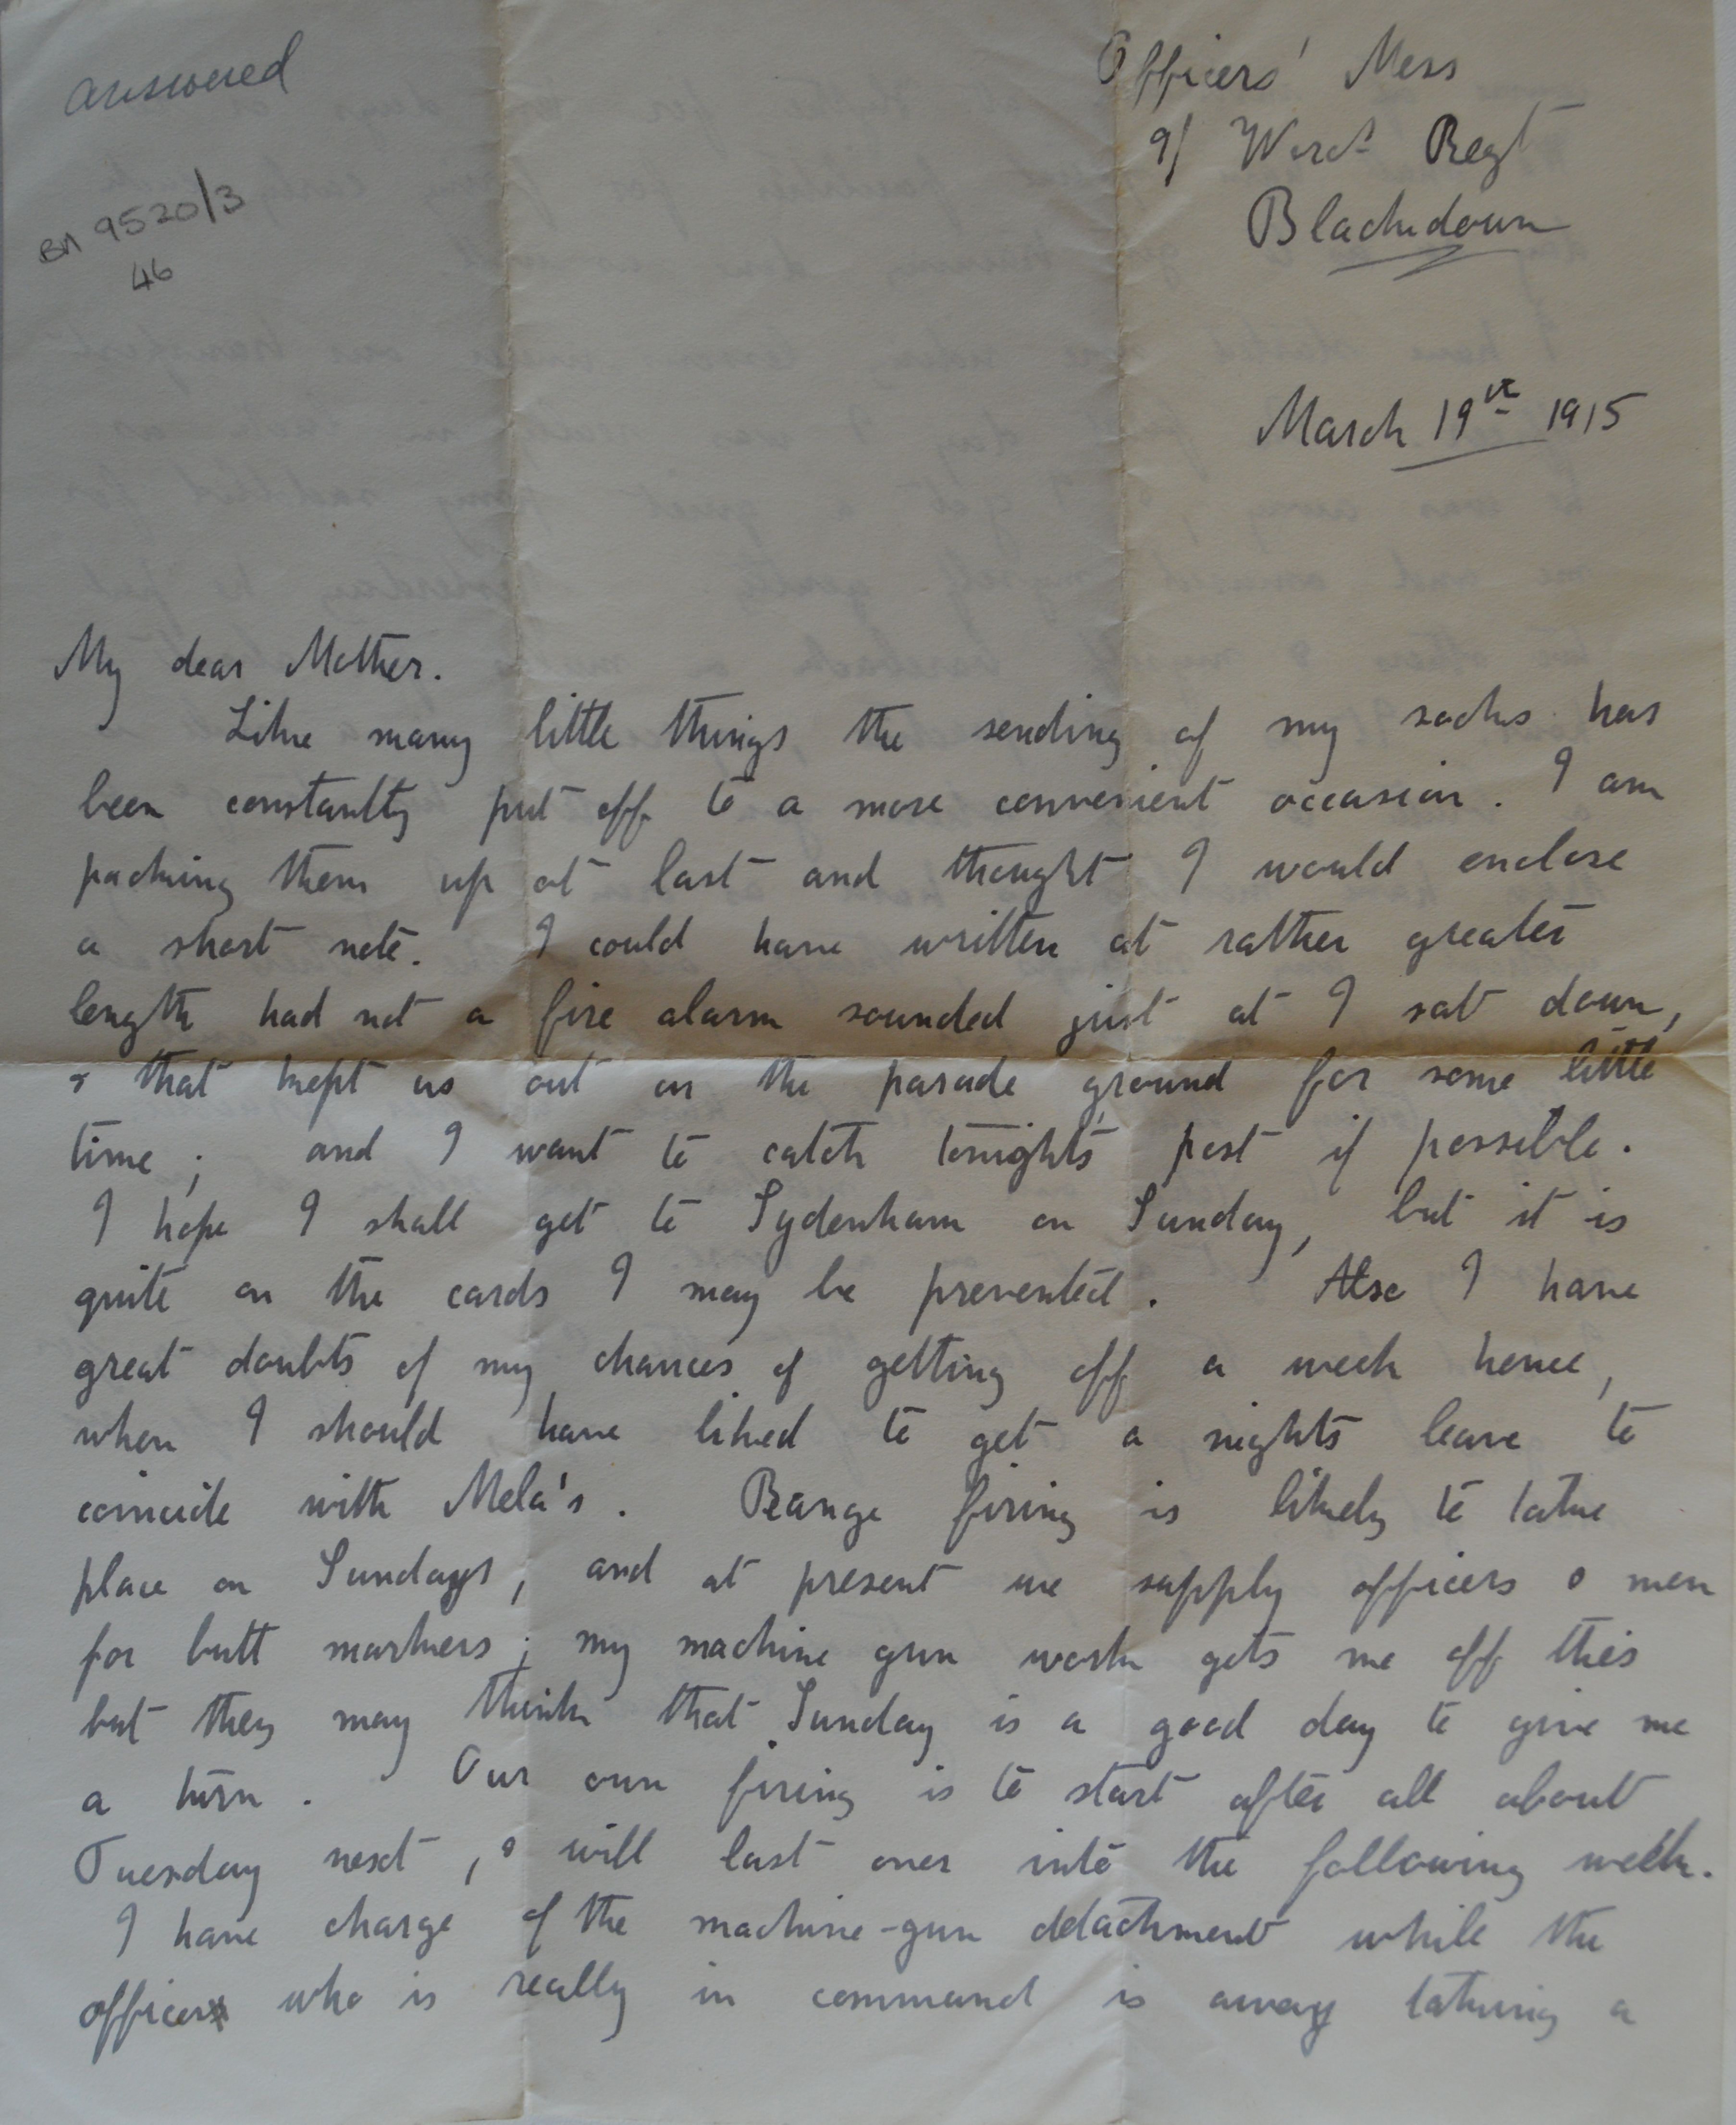 answered
BM 9520/3
46
Officers' Mess
9/ Worc. Regt
Blackdown
March 19th 1915
My dear Mother.
Like many little things the sending of my socks has
been constantly put off to a more convenient occasion. I am
packing them up at last and thought I would enclose
a short note. I could have written at rather greater
length had not a fire alarm sounded just at I sat down,
& that kept us out on the parade ground for some little
time; and I want to catch tonight's post if possible.
I hope I shall get to Sydenham on Sunday, but it is
quite on the cards I may be prevented. Also I have
great doubts of my chances of getting off a week hence,
when I should have liked to get a nights leave to
coincide with Mela's. Range firing is likely to take
place on Sundays, and at present we supply officers & men
for butt markers; my machine gun work gets me off this
but they may think that Sunday is a good day to give me
a turn. Our own firing is to start after all about
Tuesday next, & will last over into the following week.
I have charge of the machine-gun detachment while the
officer who is really in command is away taking a